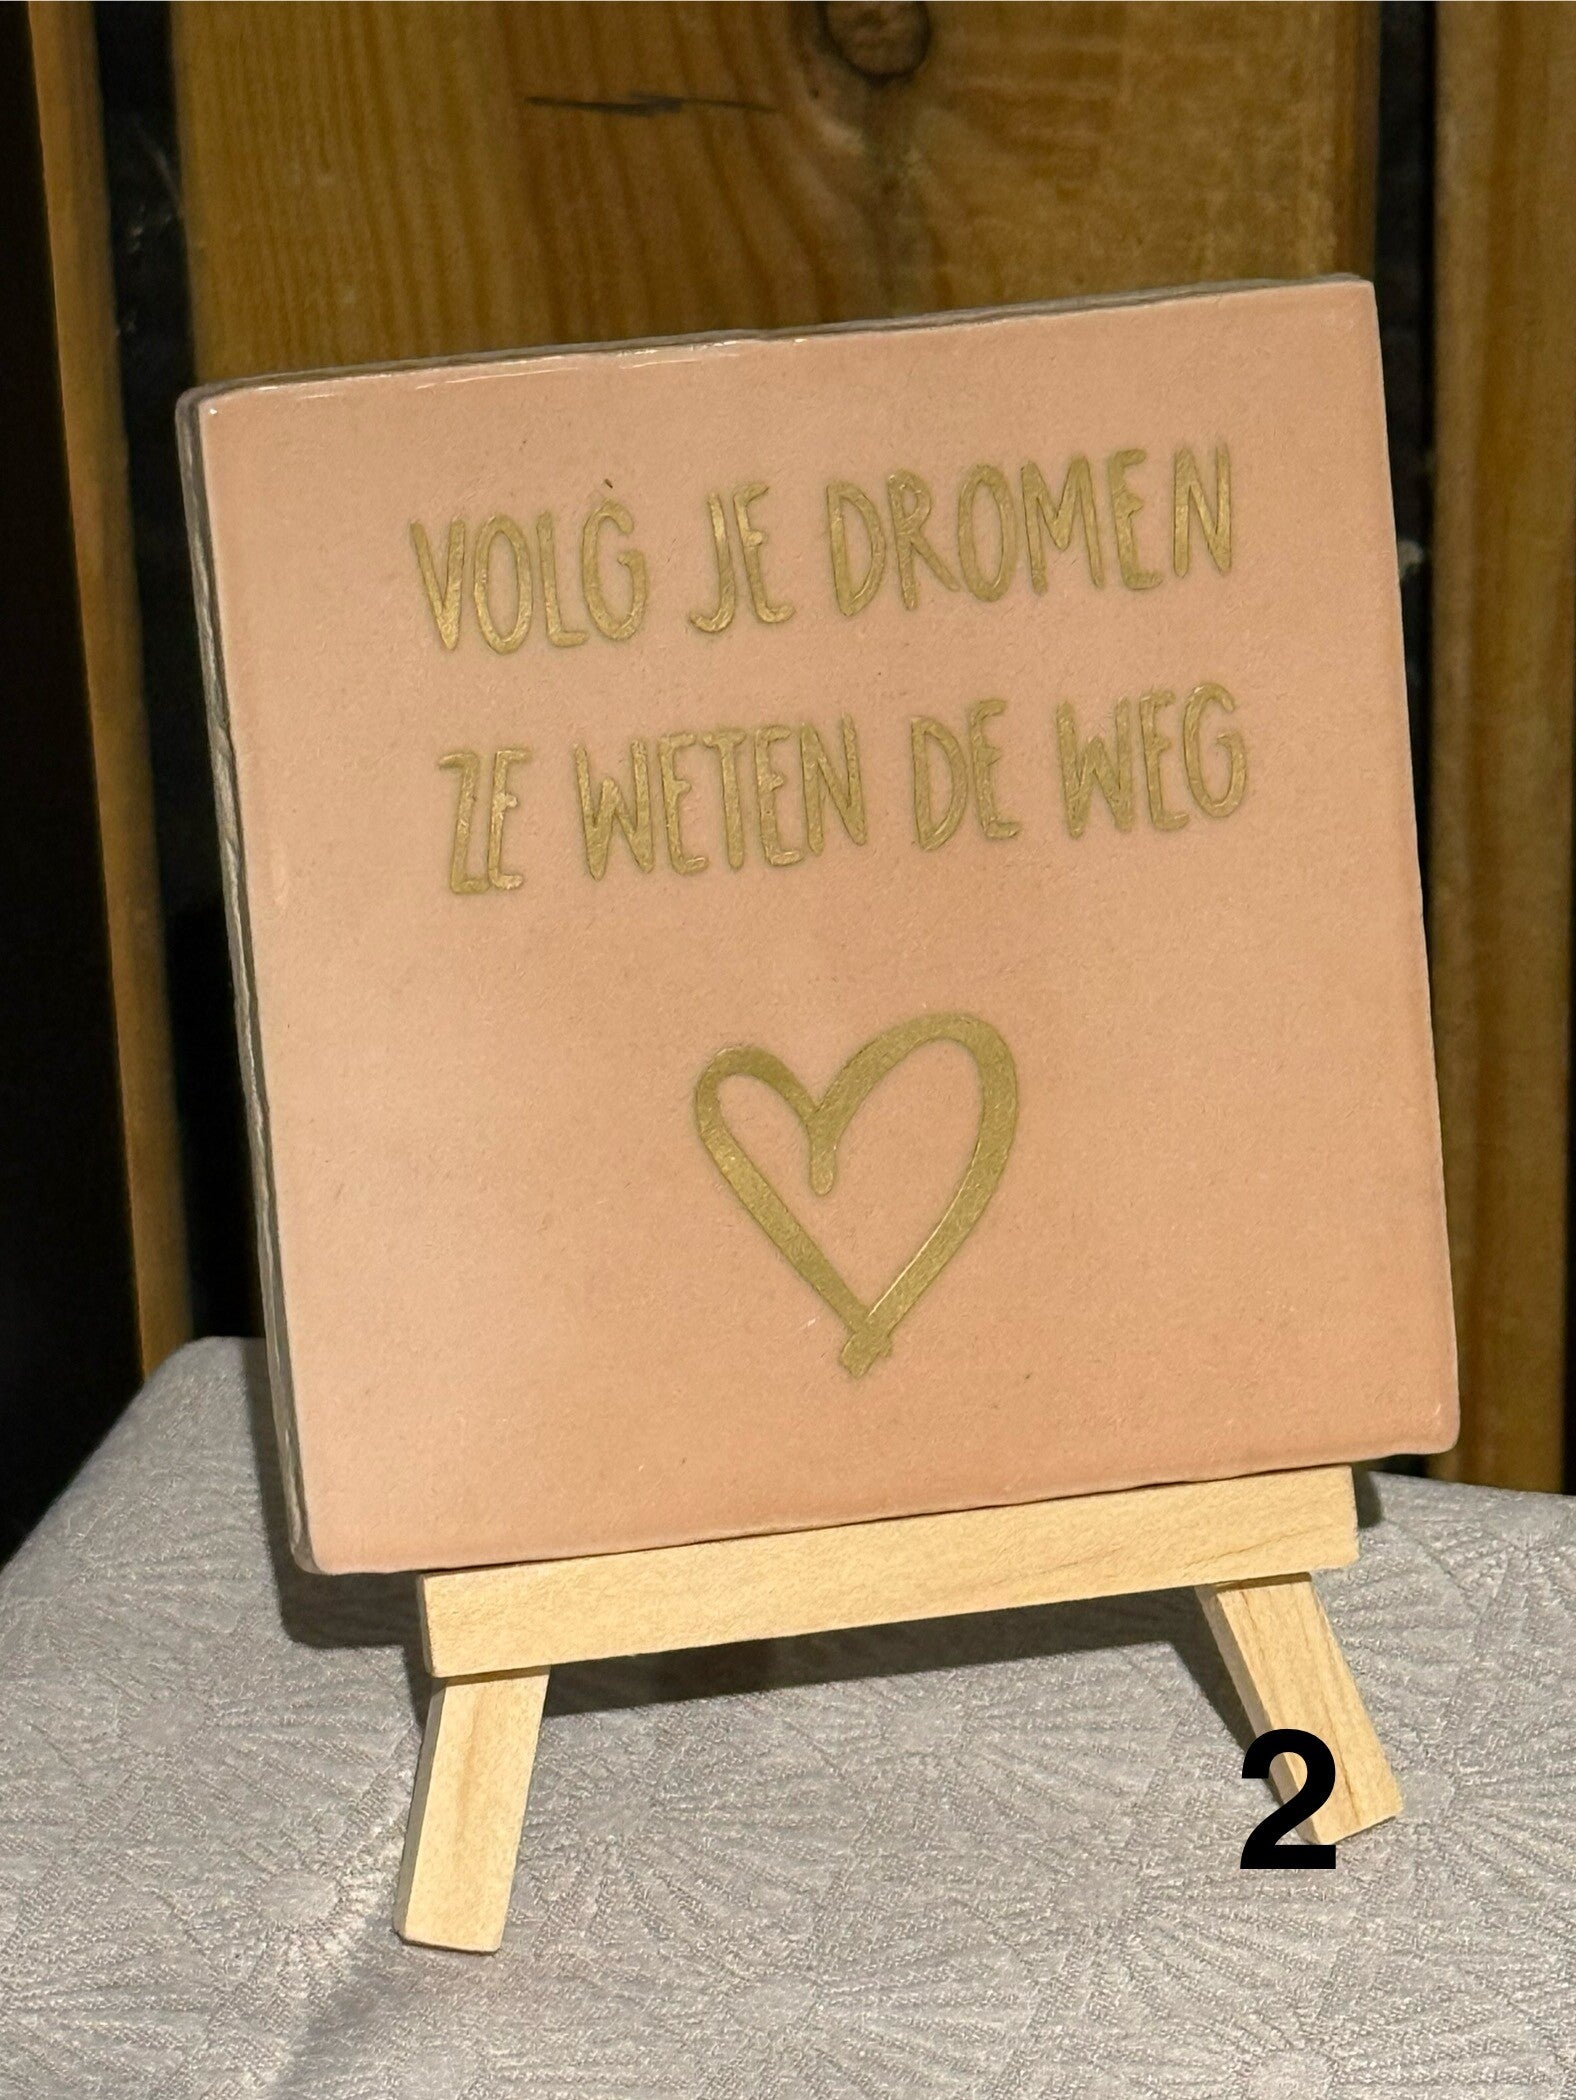 VOLG JE DROMEN
ZE WETEN DE WEG
2